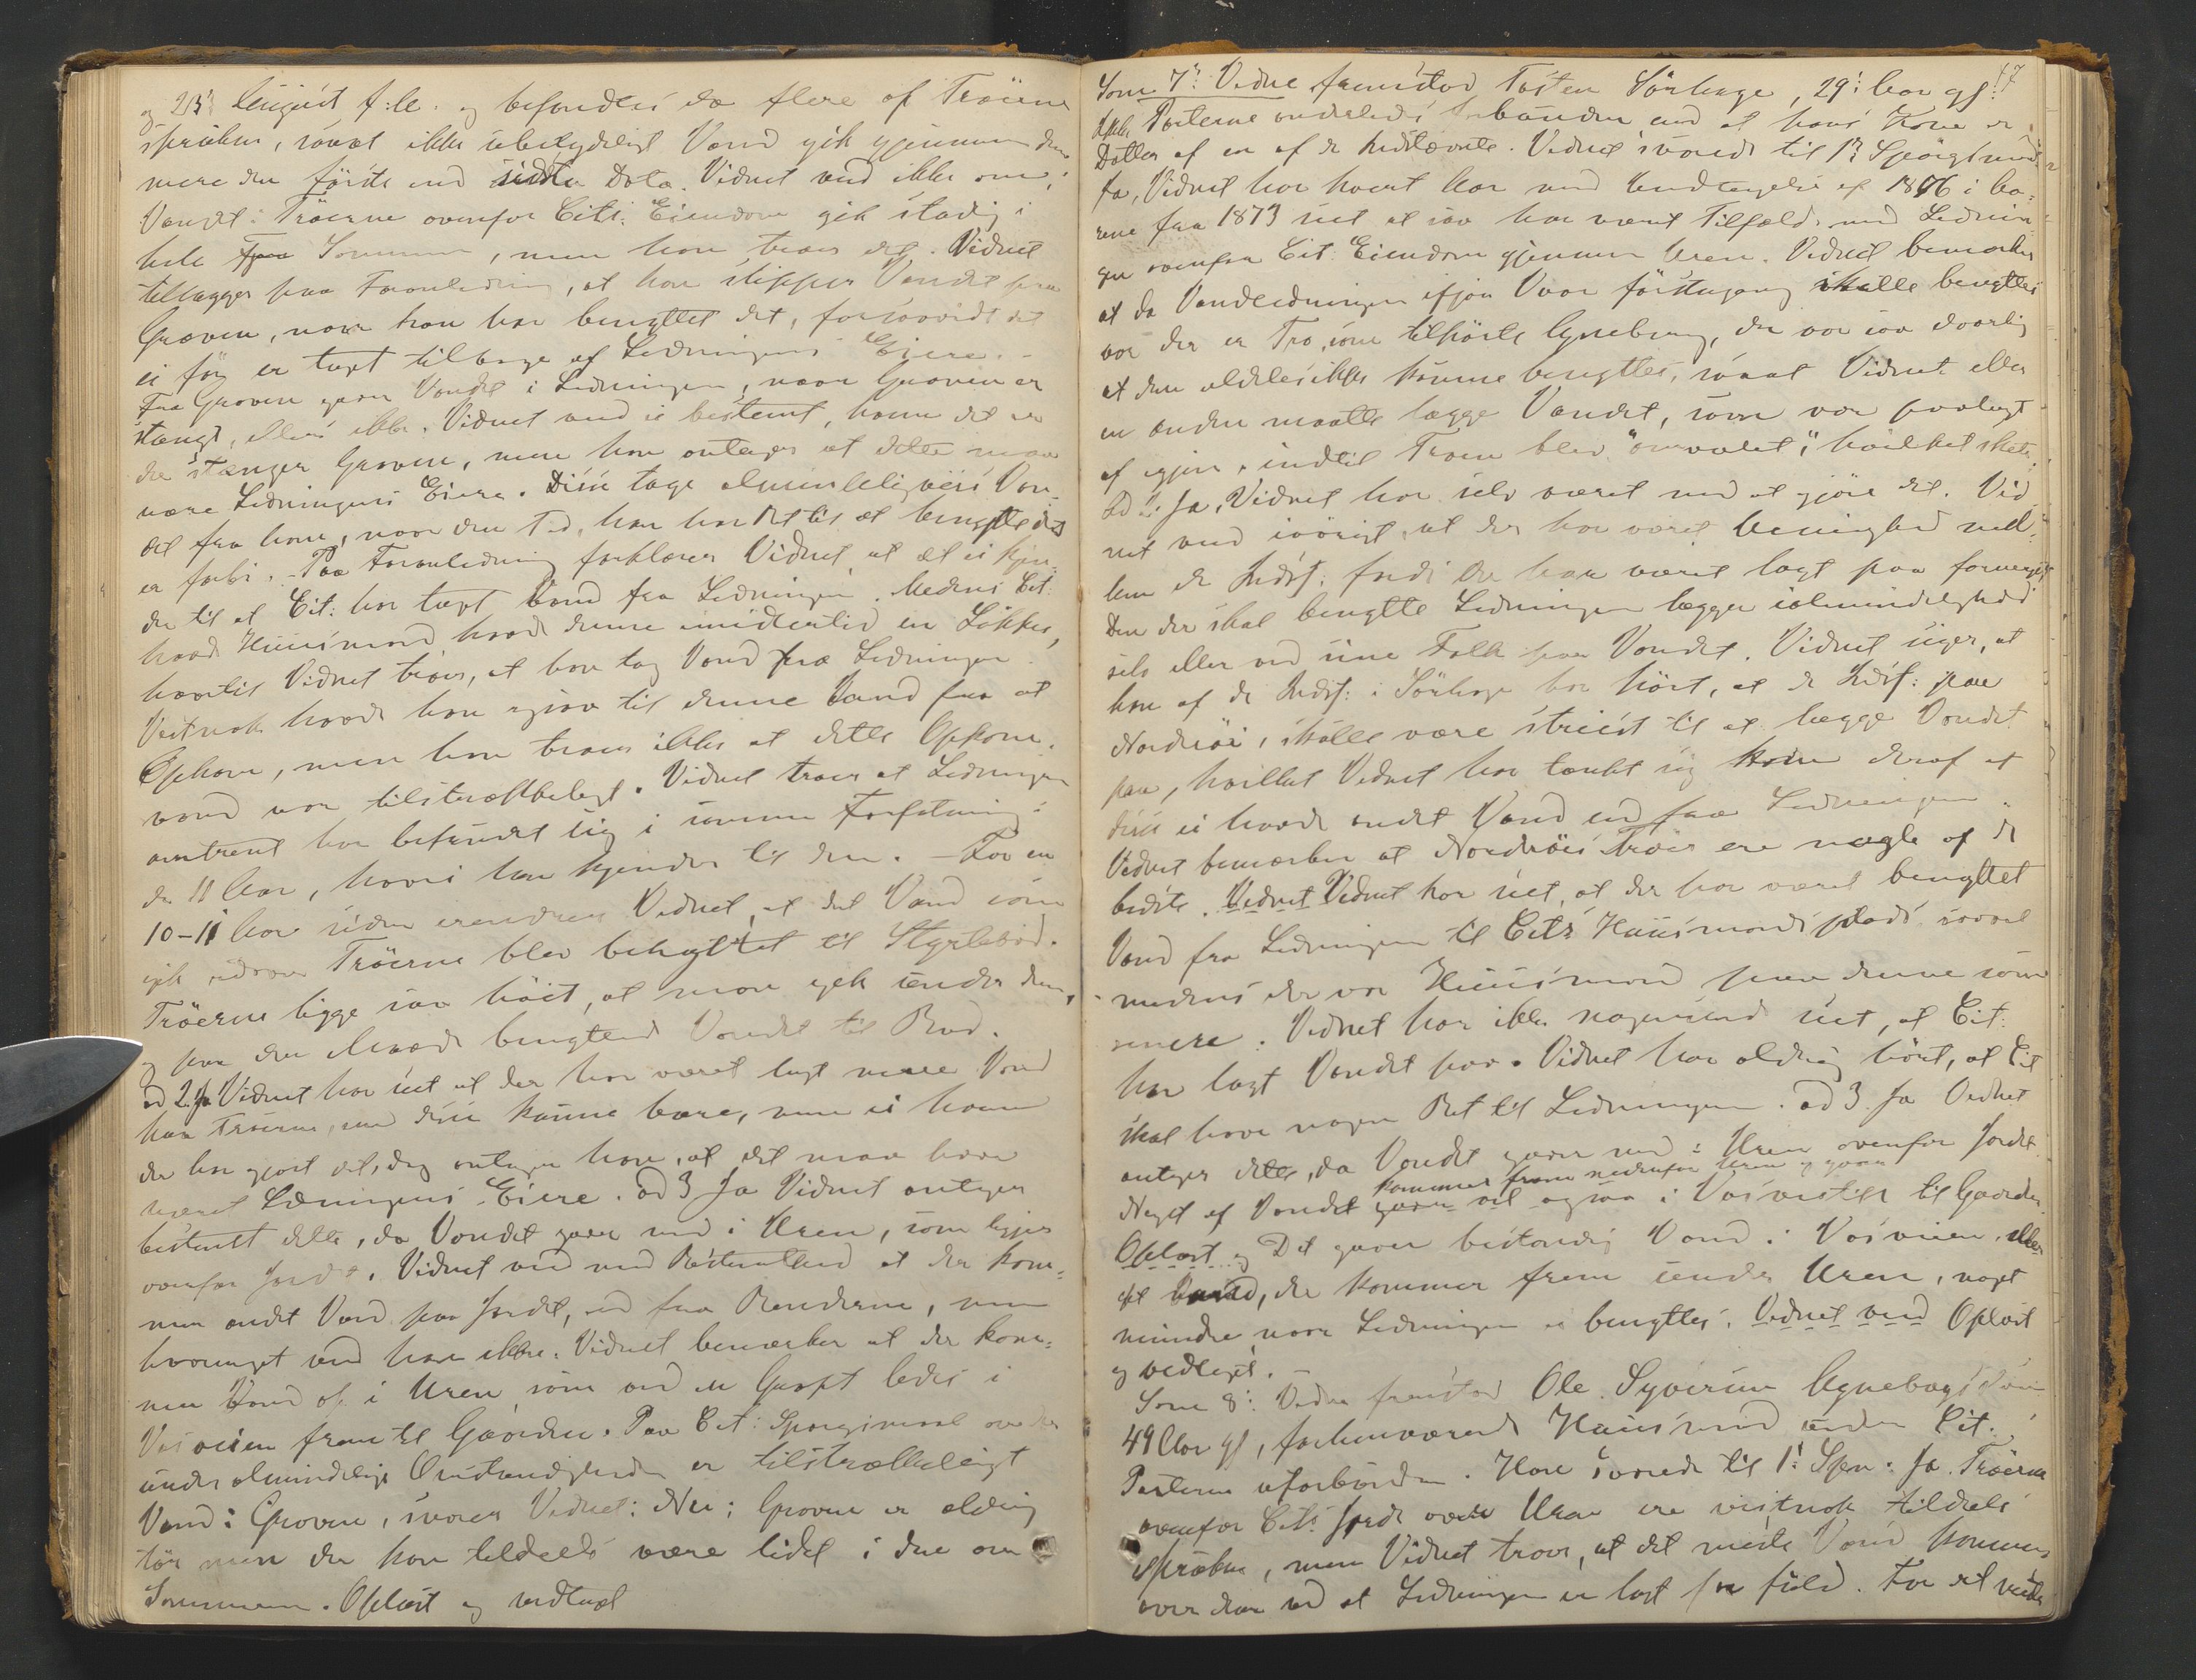 og 23 August f:A. og befandtes da flere af Tröerne
sprukne, saaat ikke ubetydeligt Vand gik gjennem dem
mere den förste end sidste Dato. Vidnet ved ikke om
Vandet i Tröerne ovenfor Cits: Eiendom gik stadig i
hele Sommeren, men han troer det. Vidnet
tillægger paa Foranledning, at han slipper Vandet paa
Graven, naar han har benyttet det, forsaavidt det
ei för er taget tilbage af Ledningens Eiere. -
Fra Graven gaar Vandet i Ledningen, naar Graven er
stængt, ellers ikke. Vidnet ved ei bestemt, hvem det er
der stænger Graven, men han antager at dette maa
være Ledningens Eiere. Disse tage almindeligviis Van-
det fra ham, naar den Tid, han har Ret til at benytte det
er forbi. - Paa Foranledning forklarer Vidnet, at det ei kjen-
der til at Cit: har taget Vand fra Ledningen. Medens Cit:
havde Huusmand havde denne imidlertid en Løkke,
hvortil Vidnet troer, at han tog Vand fra Ledningen.
Vistnok havde han ogsaa til denne Vand fra et
Opkom, men han troer ikke at dette Opkom-
vand var tilstrækkeligt. Vidnet troer at Ledningen
omtrent har befundet sig i samme Forfatning i
de 11 Aar, hvori han kjender til den. - For en
10-11 Aar siden erindrer Vidnet, at det Vand som
gik udover Tröerne blev benyttet til Styrtebad.
Tröerne ligge saa höit, at man gik under dem,
og paa den Maade benyttend Vandet til Bad.
ad 2. Ja Vidnet har seet at der har været lagt mere Vand
paa Tröerne, end disse kunne bære, men ei hvem
der har gjort det, dog antager han, at det maa have
været Ledningens Eiere. ad 3 Ja Vidnet antager
bestemt dette, da Vandet gaar ned i Uren, som ligger
ovenfor Jordet. Vidnet ved med Bestemthed at der kom-
mer andet Vand paa Jordet, end fra Renderne, men
hvormeget ved han ikke. Vidnet bemærker at der kom-
mer Vand op i Uren som ved en Gröft ledes i
Vasveien frem til Gaarden. Paa Cit: Spørgsmaal om der
under almindelige Omstændigheder er tilstrækkeligt
Vand i Graven, svarer Vidnet: Nei; Graven er aldrig
tör men der kan tildeels være lidet i den om
Sommeren. Oplæst og vedtaget
47
Som 7de Vidne fremstod Tosten Sörhage, 29: Aar gl:
Parterne anderledes uforbunden end at hans Kone er
Datter af en af de Indstævnte. Vidnet svarede til 1ste Spörgsmaal
Ja, Vidnet har hvert Aar med Undtagelse af 1876 i Aa-
rene fra 1873 seet at saa har været Tilfældet med Lednin-
gen ovenfra Cit: Eiendom gjennem Uren. Vidnet bemærker
at da Vandledningen ifjor Vaar förstegang skulle benyttes
var der en Tro, som tilhörte Agneberg, der var saa daarlig
at den aldeles ikke kunne benyttes, saaat Vidnet eller
en anden maatte lægge Vandet, som var paalagt
af igjen, indtil Troen blev "omvæltet", hvilket skete.
Ad 2: Ja, Vidnet har selv været med at gjöre det. Vid-
net ved iövrigt, at der har været Uenighed mel-
lem de Indst: fordi der har været lagt paa formeget
Den der skal benytte Ledningen lægger i almindelighed
selv eller ved sine Folk paa Vandet. Vidnet siger, at
han af de Indst: i Sörhage har hört, at de Indst: paa
Nordröi, skulle være striest til at lægge Vandet
paa, hvilket Vidnet har tænkt sig kom deraf at
disse ei havde andet Vand end fra Ledningen.
Vidnet bemærker at Nordröis Tröer ere nogle af de
bedste. Vidnet Vidnet har seet, at der har været benyttet
Vand fra Ledningen til Cits Huusmandsplads saavel
medens der var Huusmand paa denne som
senere. Vidnet har ikke nogensinde seet, at Cit:
har lagt Vandet paa. Vidnet har aldrig hört, at Cit
skal have nogen Ret til Ledningen. ad 3. Ja Vidnet
antager dette, da Vandet gaar ned i Uren ovenfor Jordet
kommer frem nedenfor Uren og gaar
Noget af Vandet gaar vel ogsaa i Vasveien til Gaarden
Oplæst og Det gaaer bestandig Vand i Vasveien,
Vand, der kommer frem under Uren, noget
mindre naar Ledningen ei benyttes. Vidnet ved Oplæst
og vedtaget. -
Som 8: Vidne fremstod Ole Syversen Agneberg
49 Aar gl, forhenværende Huusmand under Cit.
Parterne uforbunden. Han svarede til 1: Spm: Ja. Tröerne
ovenfor Cits Jorde over Uren ere vistnok tildeels
sprukne, men Vidnet troer, at det meste Vand kommer
over den ved at Ledningen er lagt for fuld. For det